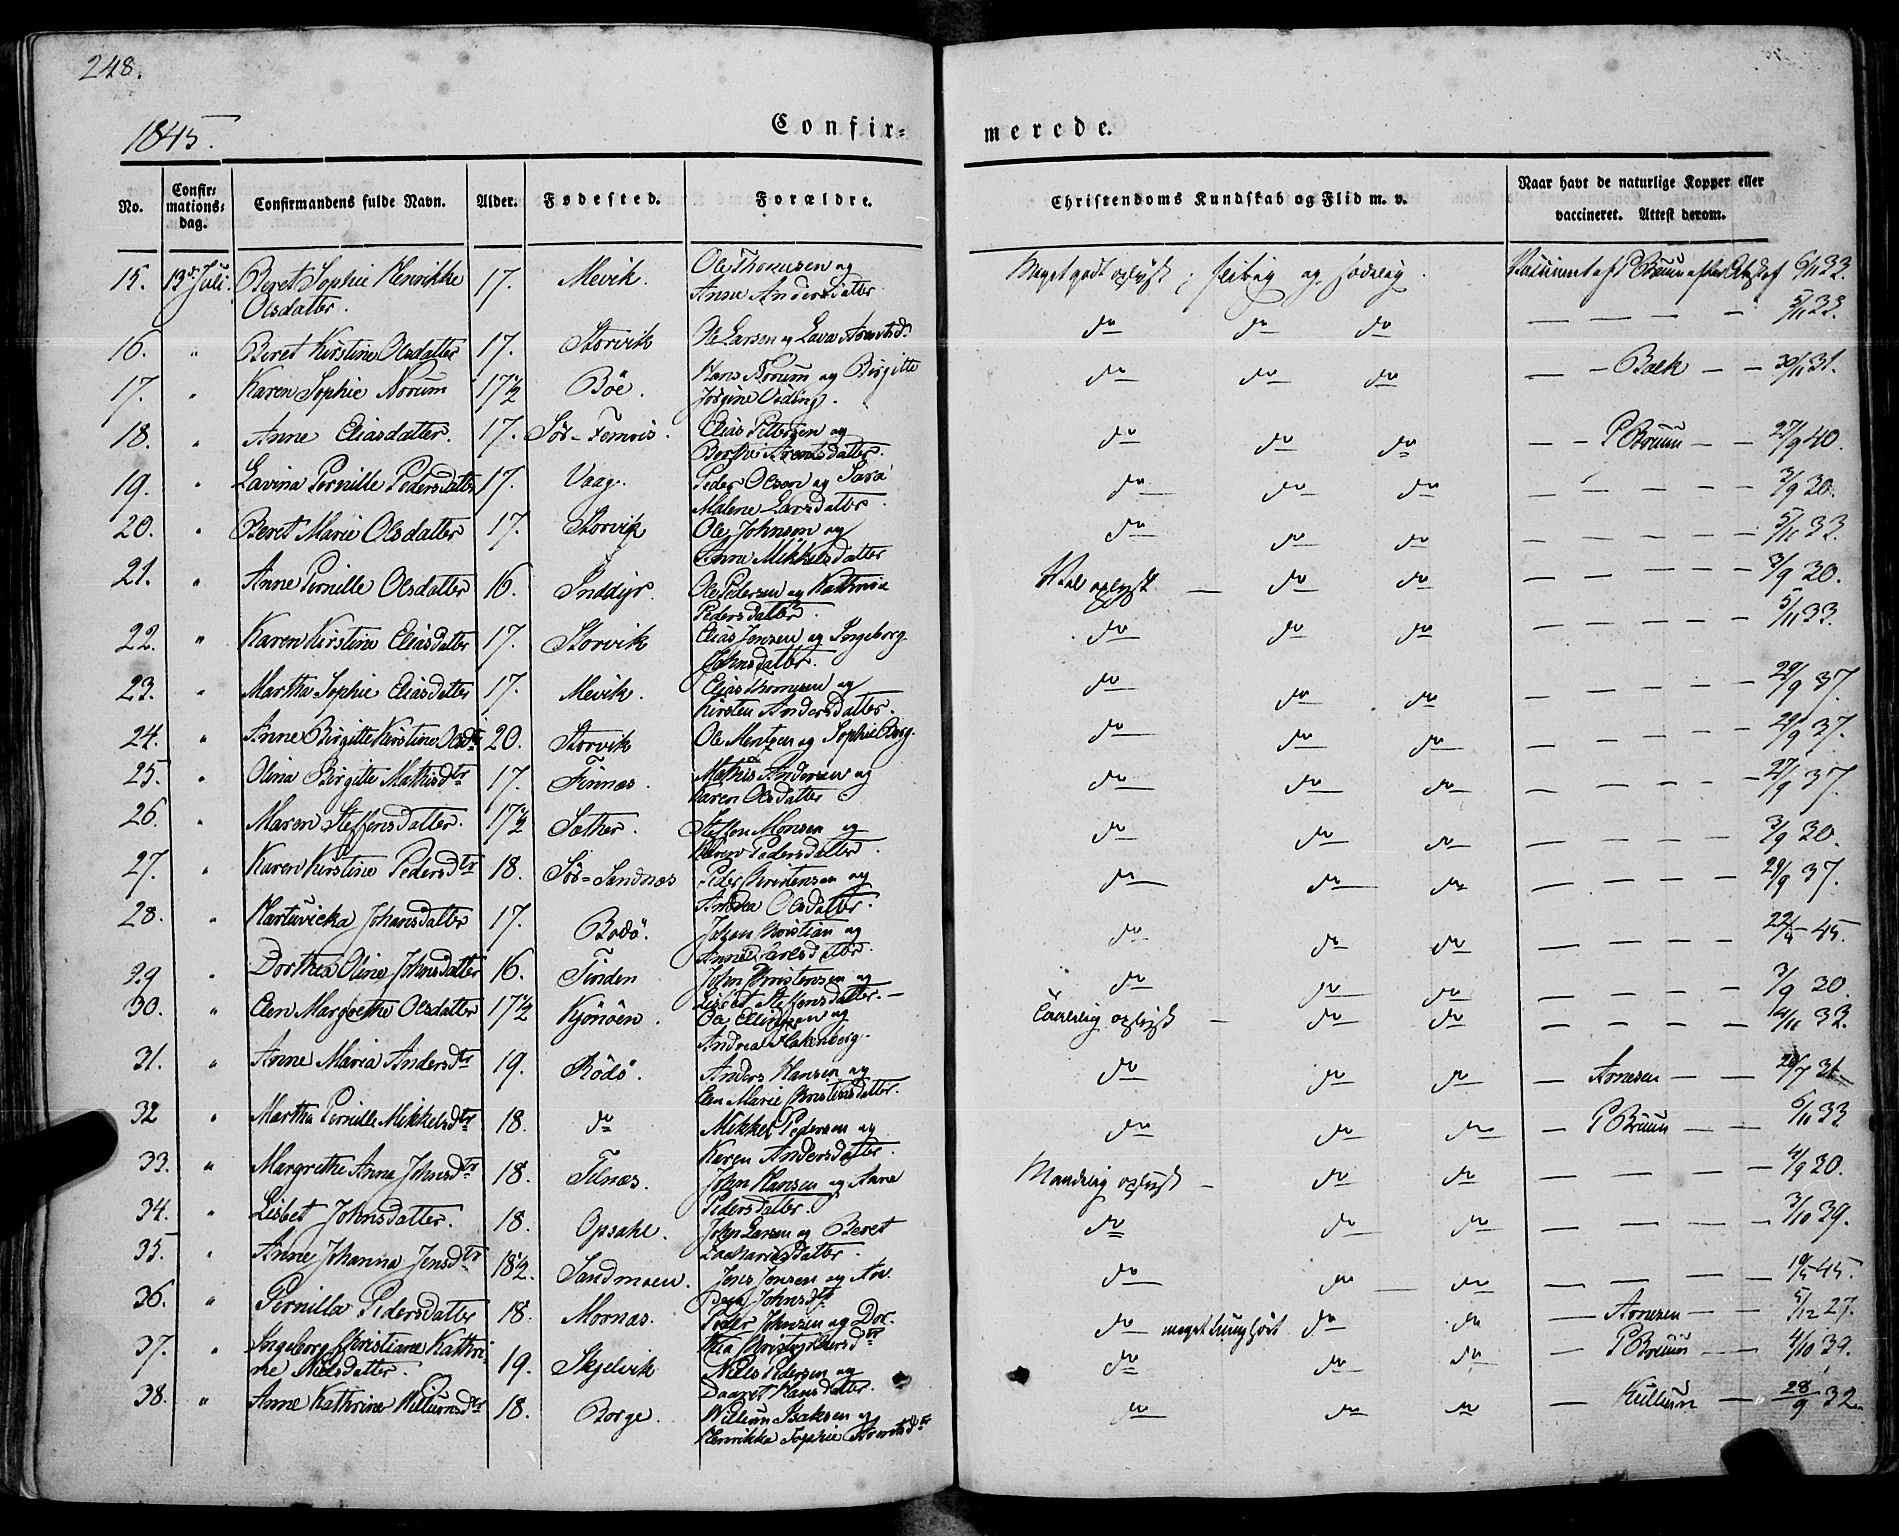 248.
1845.
Confir-
merede.
No.
Confir-
mations-
dag.
Confirmandens fulde Navn.
Alder.
Fødested.
Forældre.
Christendoms Kundskab og Flid m. v.
Naar havt de naturlige Kopper eller
vaccineret. Attest derom.
15. 13de Juli. Beret Sophie Henrikke 17. Mevik. Ole Thomesen og Meget godt oplyst; flittig og sædelig. 6/11 33.
Olsdatter. Anne Andersdatter
16. " Beret Kirstine Olsdatter 17. Storvik Ole Larsen og do do do — — — — 5/11 33.
17. " Karen Sophie Norum 17½ Böe. Hans Norum og Birgitte do do do — — Bæk — — 30/11 31.
18. " Anne Eliasdatter. 17. Sör-Femris. Elias Pettersen og do do do — — P Bruun — — 27/9 40.
Arentsdatter.
19. " Lavina Pernille Pedersdatter 17. Vaag. Peder Olsen og Sara do do do — — — — — 3/9 30.
Malene Larsdatter.
20. " Beret Marie Olsdatter 17. Storvik Ole Johnsen og do do do — — — — — 5/11 33.
Anne Mikkelsdatter
21. " Anne Pernille Olsdatter 16. Inddyr. Ole Pedersen og Kathrine Vel oplyst — do do — — — — — 3/9 30.
Pedersdatter.
22. " Karen Kirstine Eliasdatter 17. Storvik Elias Jensen og Ingeborg do do do — — — — — 5/11 33.
Johnsdatter.
23. " Martha Sophie Eliasdatter 17. Mevik. Elias Thomesen og do do do — — — — — 29/9 37.
Kirsten Andersdatter.
24. " Anne Birgitte Kirstine Olsdtr 20. Storvik Ole Mentzen og Sophie do do do — — — — — 29/9 37.
25. " Olina Birgitte Mathisdtr 17. Finnæs. Mathis Andersen og do do do — — — — — 27/9 37.
Karen Olsdatter
26. " Maren Steffensdatter. 17½ Sæther. Steffen Monsen og do do do — — — — — 3/9 30.
Karen Pedersdatter.
27. " Karen Kirstine Pedersdtr 18. Sör-Sandnæs Peder Christensen og do do do — — — — — 29/9 37.
Andrea Olsdatter.
28. " Hartuvicka Johansdatter 17. Bodö. Johan Christian og do do do — — — — — 22/5 45.
29 " Dorthea Oline Johnsdatter 16. Finden John Christensen og do do do — — — — — 3/9 30.
Lisbet Steffensdatter. —
30. " Elen Margrethe Olsdatter 17½ Kjönöen. Ole Ellingsen og Taalelig oplyst — do do — — — — — 4/11 33.
Andrea Hakenberg.
31. " Anne Maria Andersdtr 19. Rödö. Anders Hansen og do do do — Arnesen — — 20/7 31
Elen Marie Christensdatter.
32 " Martha Pernille Mikkelsdtr 18. do Mikkel Pedersen og do do do — P Bruun — — 6/11 33
Karen Andersdatter.
33. " Margrethe Anna Johnsdtr 18. Felnæs. John Hansen og Anne Maadelig oplyst — do do — — — — — 4/9 30.
Pedersdatter.
34. " Lisbet Johnsdatter. 18. Opsahl. John Larsen og Beret do do do — — — — — 3/10 39.
Zachariasdatter.
35. " Anne Johanna Jensdtr 18½. Sandmoen. Jens Jensen og An. do do do — — — — — 19/5 45.
Johnsdtr
36. " Pernilla Pedersdatter 18. Mornæs. Peder Johnsen og Dor- do meget tunghört. do do — Arnesen — — 5/12 27.
thea
37. " Ingeborg Christiane Kathri- 19. Skjelvik Niels Pedersen og do do do — P Bruun — — 4/10 39.
ne Nielsdatter. Hansdatter.
38. " Anne Kathrine Willumsdtr 18. Borge. Willum Isaksen og do do do — Killum — 28/9 32.
Henrikka Sophie Arentsdtr